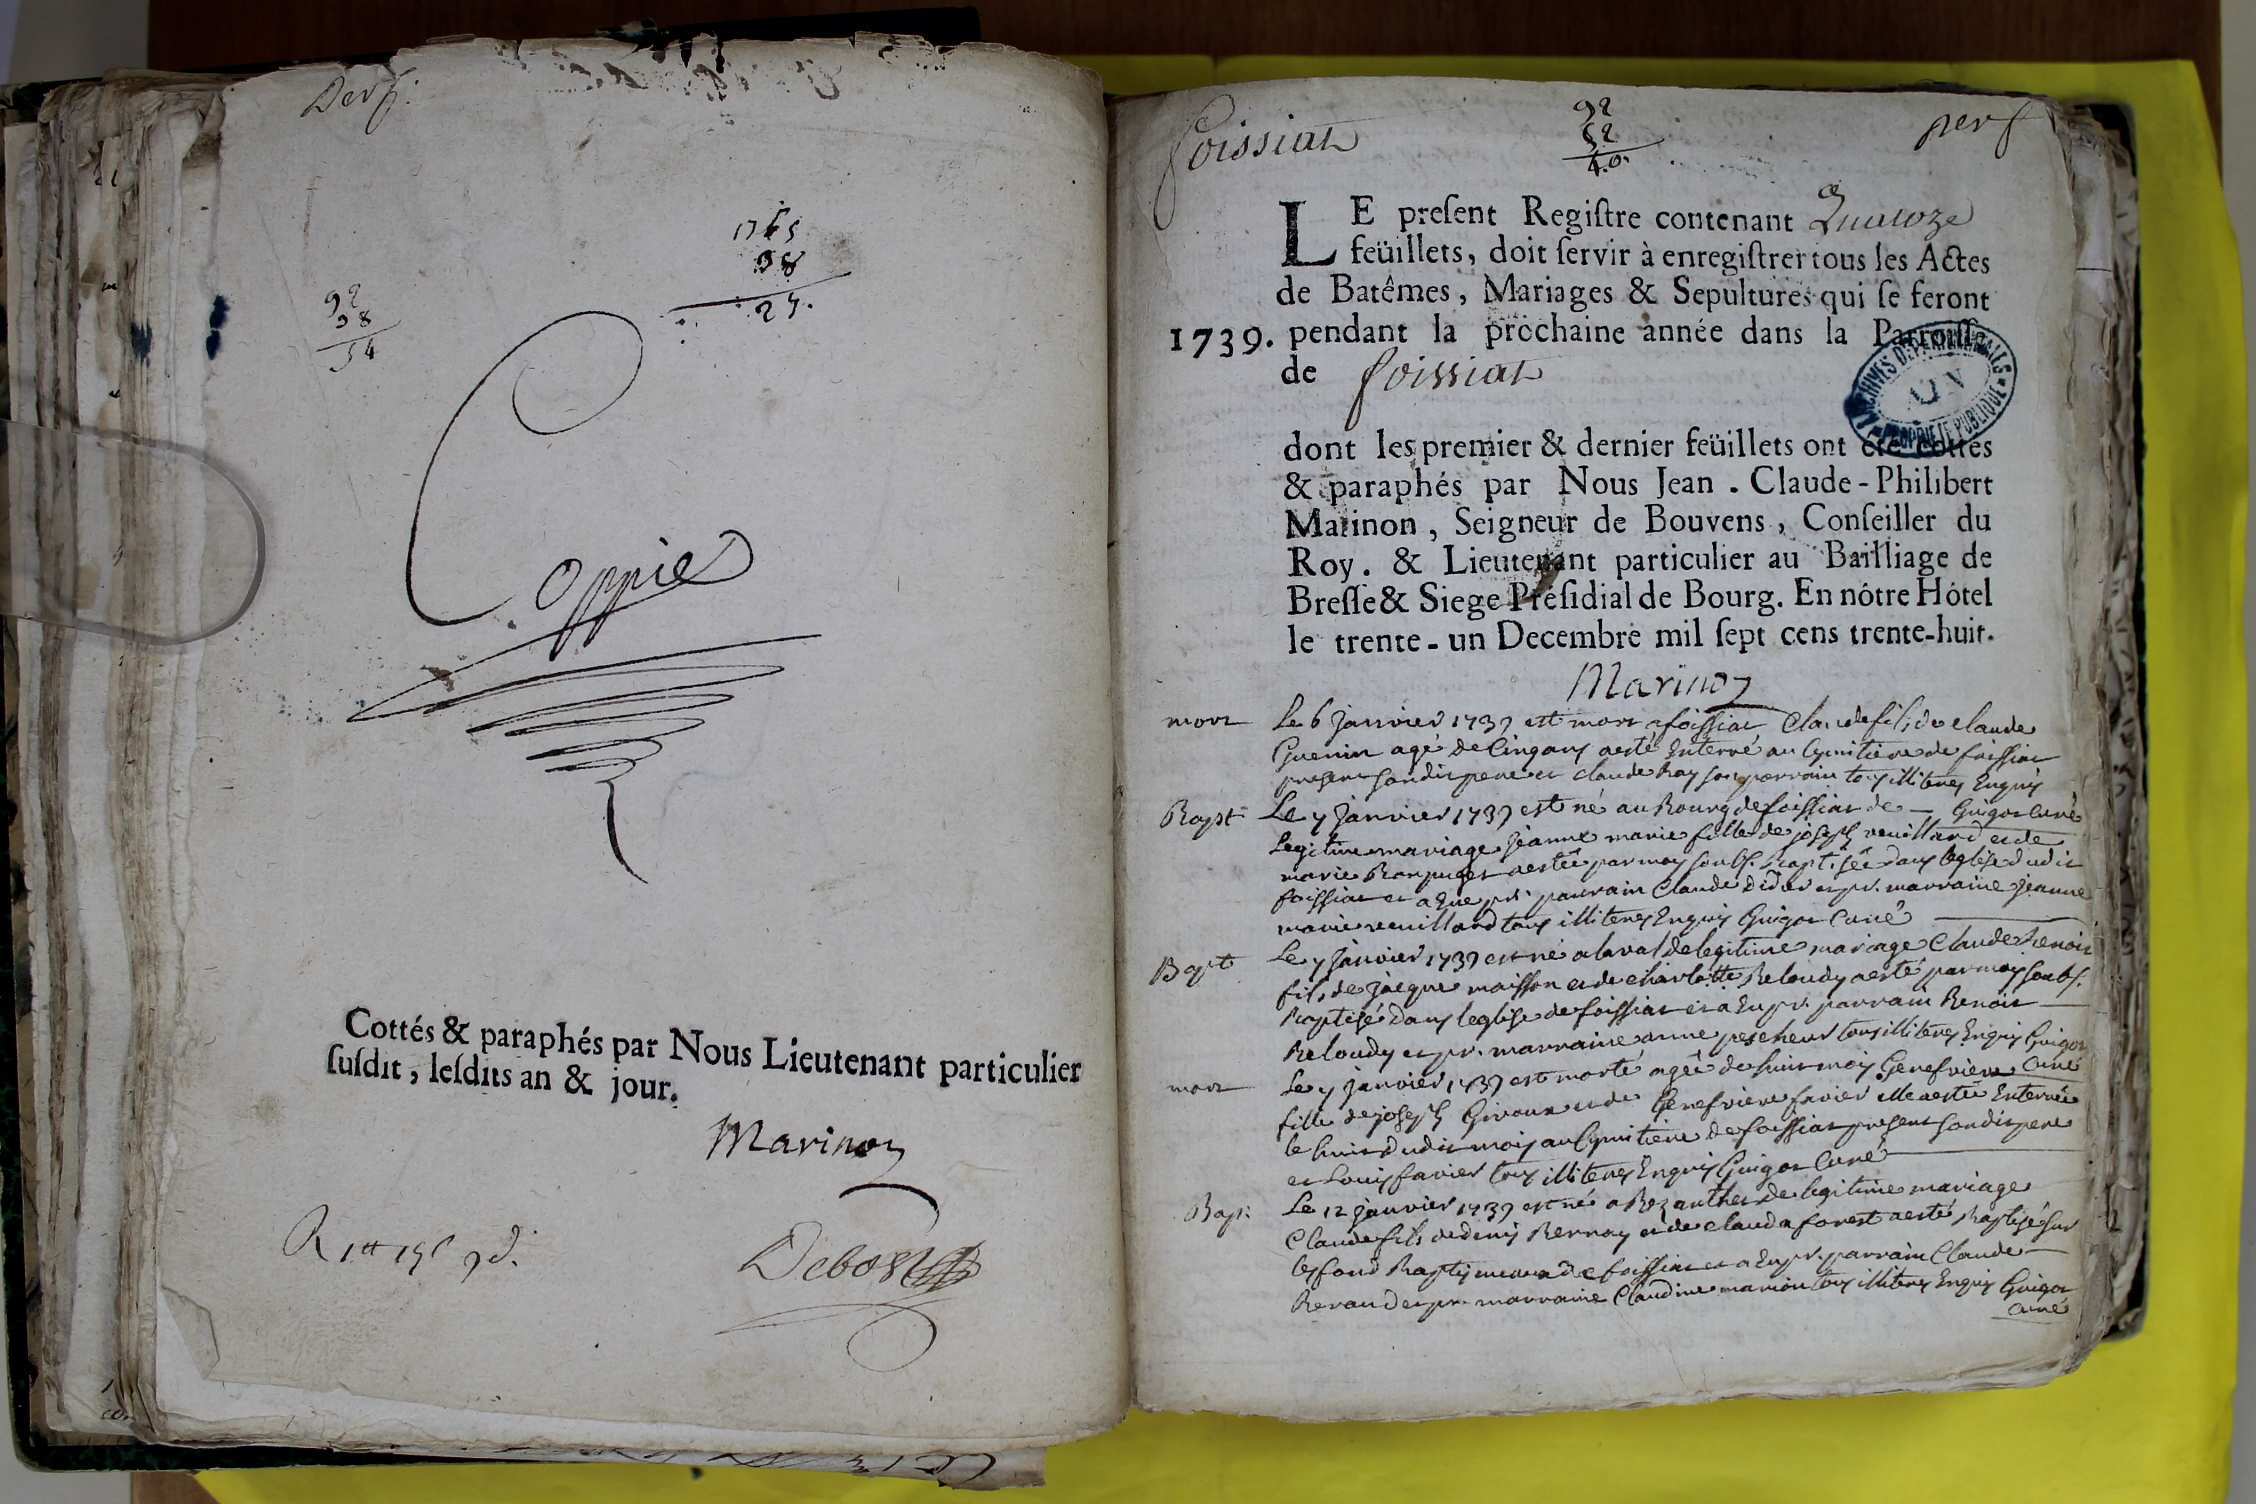 Der f.
1765
98
27.
92
38
54
Coppie
Cottés & paraphés par Nous Lieutenant particulier
ſuſdit, leſdits an & jour.
Marinon
Debost
foissiat
92
52
40.
per f
LE preſent Regiſtre contenant Quatorze
feüillets, doit ſervir à enregiſtrer tous les Actes
de Batêmes, Mariages & Sepultures qui ſe feront
1739. pendant la prochaine année dans la Parroiſſe
de foissiat
ARCHIVES DEPARTEMENTALES
AIN
PROPRIETE PUBLIQUE
dont les premier & dernier feüillets ont été cottés
& paraphés par Nous Jean. Claude-Philibert
Marinon, Seigneur de Bouvens, Conſeiller du
Roy. & Lieutenant particulier au Bailliage de
Breſſe & Siege Préſidial de Bourg. En nôtre Hôtel
le trente-un Decembre mil ſept cens trente-huit.
Marinon
mort Le 6 janvier 1739 est mort a foissiat Claude fils de claude
Guenin agé de Cinq ans a esté Enterré au Cymitiere de foissiat
present son dit pere et claude Ray son parrain tous illiteres Enquis
Guigot Curé
Bapt Le 7 janvier 1739 est né au Bourg de foissiat de
legitime mariage jeanne marie fille de joseph renillard et de
marie a esté par moy soubs. Baptisée dans leglise dudit
foissiat et a Eue pr parrain Claude Didier et pr. marraine jeanne
marie renillard tous illiteres Enquis Guigot Curé
Bapt Le 7 janvier 1739 est né a laval de legitime mariage Claude benoit
fils de jacque maisson et de charlotte Reloudy a esté par moy soubs.
Baptisé dans leglise de foissiat et a Eu pr. parrain Benoit
Reloudy et pr. marraine anne pescheur tous illiteres Enquis Guigot
Curé
mort Le 7 janvier 1739 est morte agée de huit mois Genefvieve
fille de joseph Giroux et de Genefvieve favier elle a esté Enterrée
le huit dudit mois au Cymitiere de foissiat present son dit pere
et Louis favier tous illiteres Enquis Guigot Curé
Bap: Le 12 janvier 1739 est né a Bezanthet de legitime mariage
Claude fils de denis Bernay et de clauda forest a esté Baptisé sur
les fond Baptismeaux de foissiat et a Eu pr. parrain Claude
Renaud et pr. marraine Claudine marion tous illiteres Enquis Guigot
Curé